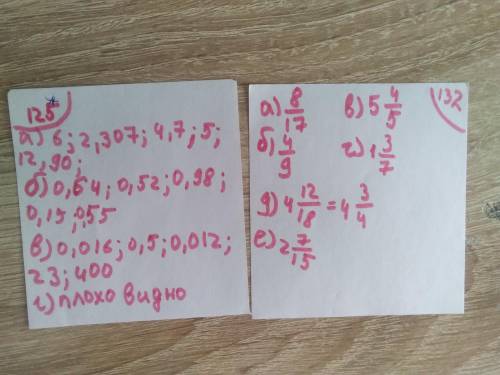 125
а) 6; 2,307; 4,7; 5;
12,90;
б) 0,64; 0,52; 0,98;
0,15; 055
в) 0,016; 0,5; 0,012;
23; 400
г) плохо видно
132
а) 8/17 в) 5 4/5
б) 4/9 г) 1 3/7
д) 4 12/18 = 4 3/4
е) 2 7/15